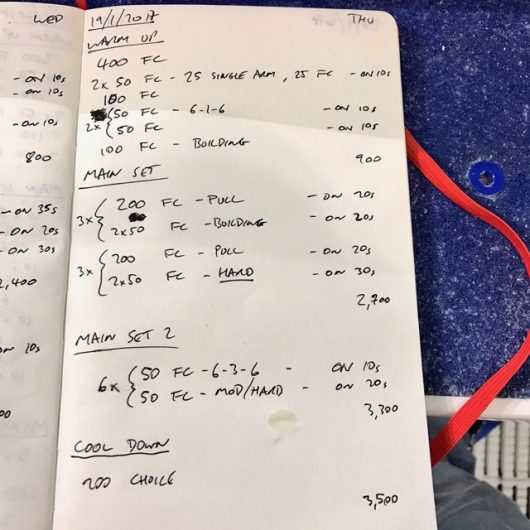 WED
- ON 10s
- ON 10s
800
- ON 35s
- ON 20s
- ON 30s
2,400
ON 10s
00
19/1/2017 THU
WARM UP
400 FC
2x 50 FC - 25 SINGLE ARM, 25 FC - ON 10s
100 FC
2x { 50 FC - 6-1-6 - ON 10s
50 FC - ON 10s
100 FC - BUILDING
900
MAIN SET
3x { 200 FC - PULL - ON 20s
2x50 FC - BUILDING - ON 20s
3x { 200 FC - PULL - ON 20s
2x50 FC - HARD - ON 30s
2,700
MAIN SET 2
6x { 50 FC - 6-3-6 - ON 10s
50 FC - MOD/HARD - ON 20s
3,300
COOL DOWN
200 CHOICE
3,500